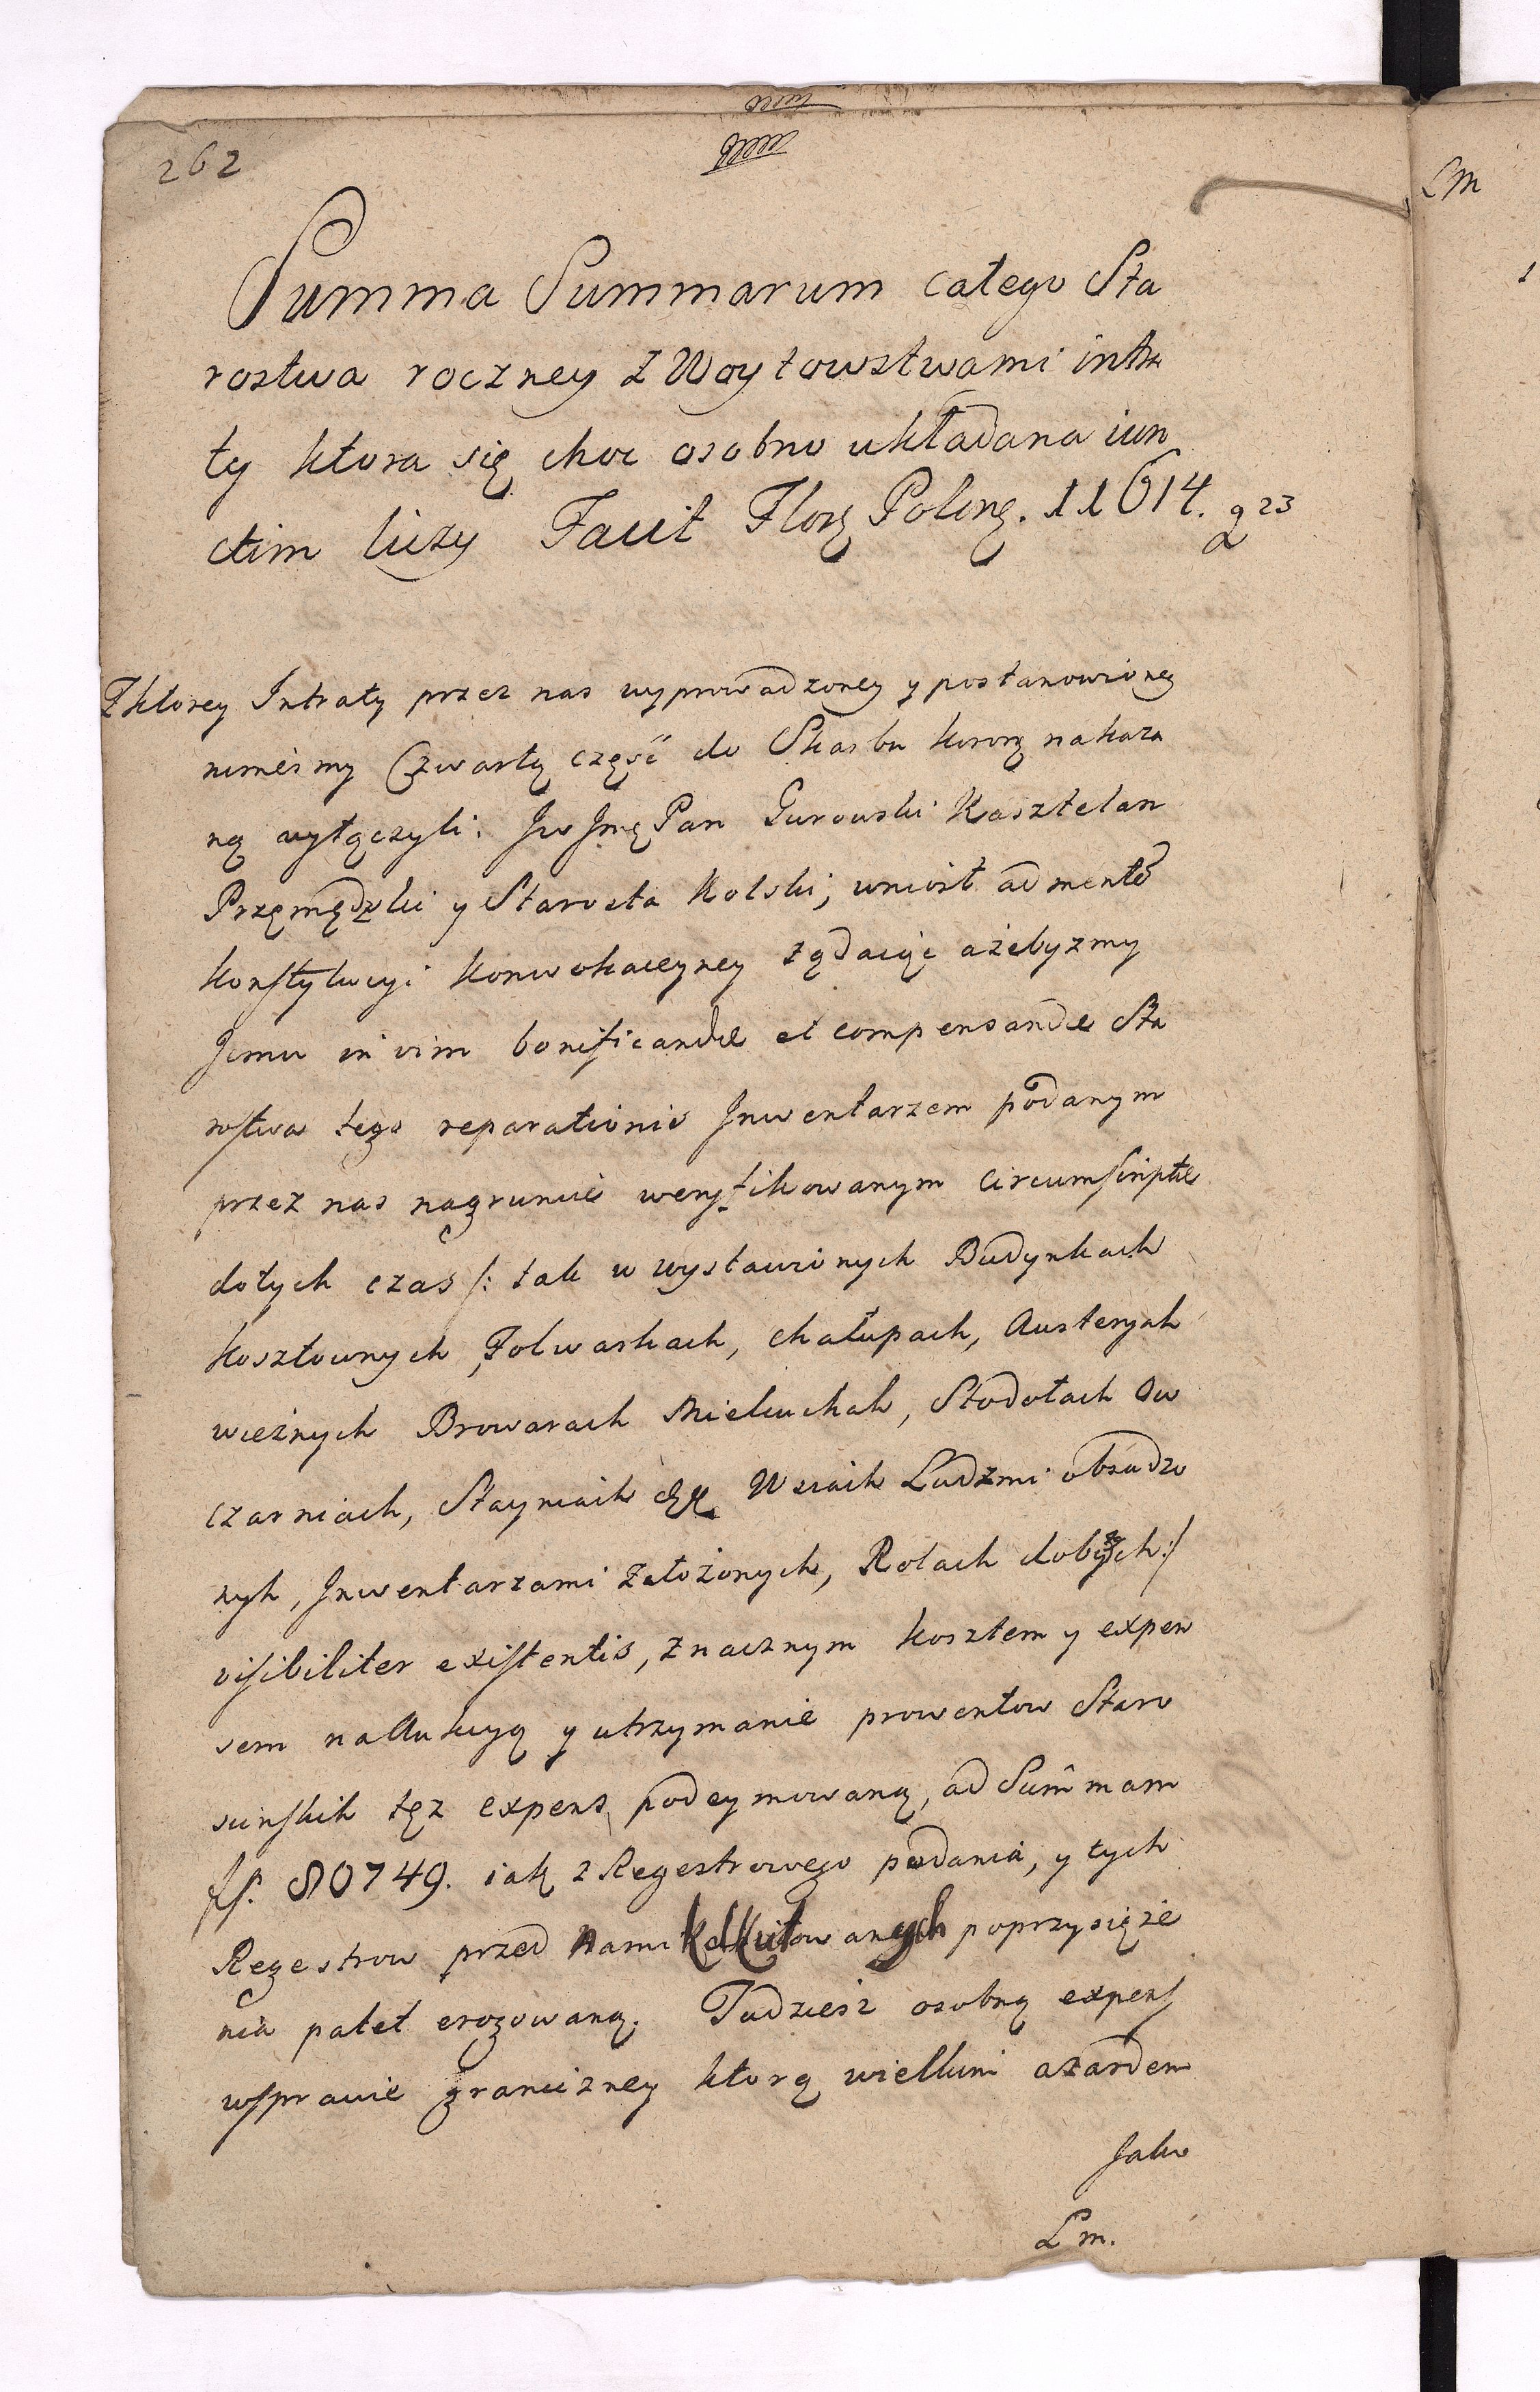 262
Summa Summarum całego Sta
rostwa roczney z Woytowstwami intra
ty ktora się choc osobno układana iun
ctim liczy Facit Flor Polon. 11614. g 23
2
Z ktorey Intraty przez nas wyprowadzoney y postanowioney
numeśmy Czwartą część do Skarbu Koron nakaza
ną wyłączyli. Jw Jmę Pan Gurowski Kasztelan
Przęmędzki y Starosta Kolski, wniosł ad mentē
Konstytucyi Konwokacyney żądaiąc ażebyzmy
Jemu in vim bonificandæ et compensandæ Sta
rostwa tego reparationis Jnwentarzem podanym
przez nas nagruncie weryfikowanym circumscriptæ
dotych czas /: tak w wystawionych Budynkach
kosztownych, Folwarkach, chałupach, Austeryah
wieżnych Browarach Mielcuchah, Stodołach Ow
czarniach, Stayniach &c Wsiach Ludzmi obsadzo
nyh, Jnwentarzami załozonych, Rolach dobytych :/
visibiliter existentis, znacznym kosztem y expen
sem naAukcyą y utrzymanie prowentow Staro
scinskih tęz expens podeymowaną, ad Summam
fp. 80749. iak z Regestrowego podania, y tych
Regestrow przed Nami Kalkulowanych poprzysięże
nia patet erogowaną. Tudziesz osobną expens
wsprawie graniczney ktorą wielkim azardem
Jako
L m.
L m